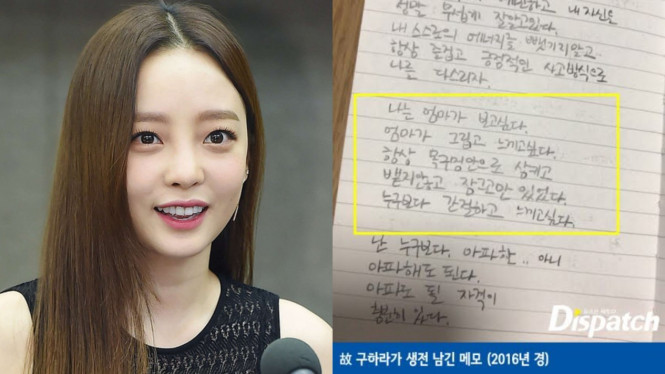 내 자신은
정말 무섭게 잘알고있다.
내 스스로의 에너지를 뺏기지않고
항상 즐겁고 긍정적인 사고방식으로
나를 다스리자.
나는 엄마가 보고싶다.
엄마가 그립고 느끼고싶다.
항상 목구멍안으로 삼키고
뱉지않고 잠그고만 있었다.
누구보다 간절하고 느끼고싶다.
난 누구보다. 아파한.. 아니
아파해도 된다.
아파도 될 자격이
충분히 있다.
Dispatch
故 구하라가 생전 남긴 메모 (2016년 경)